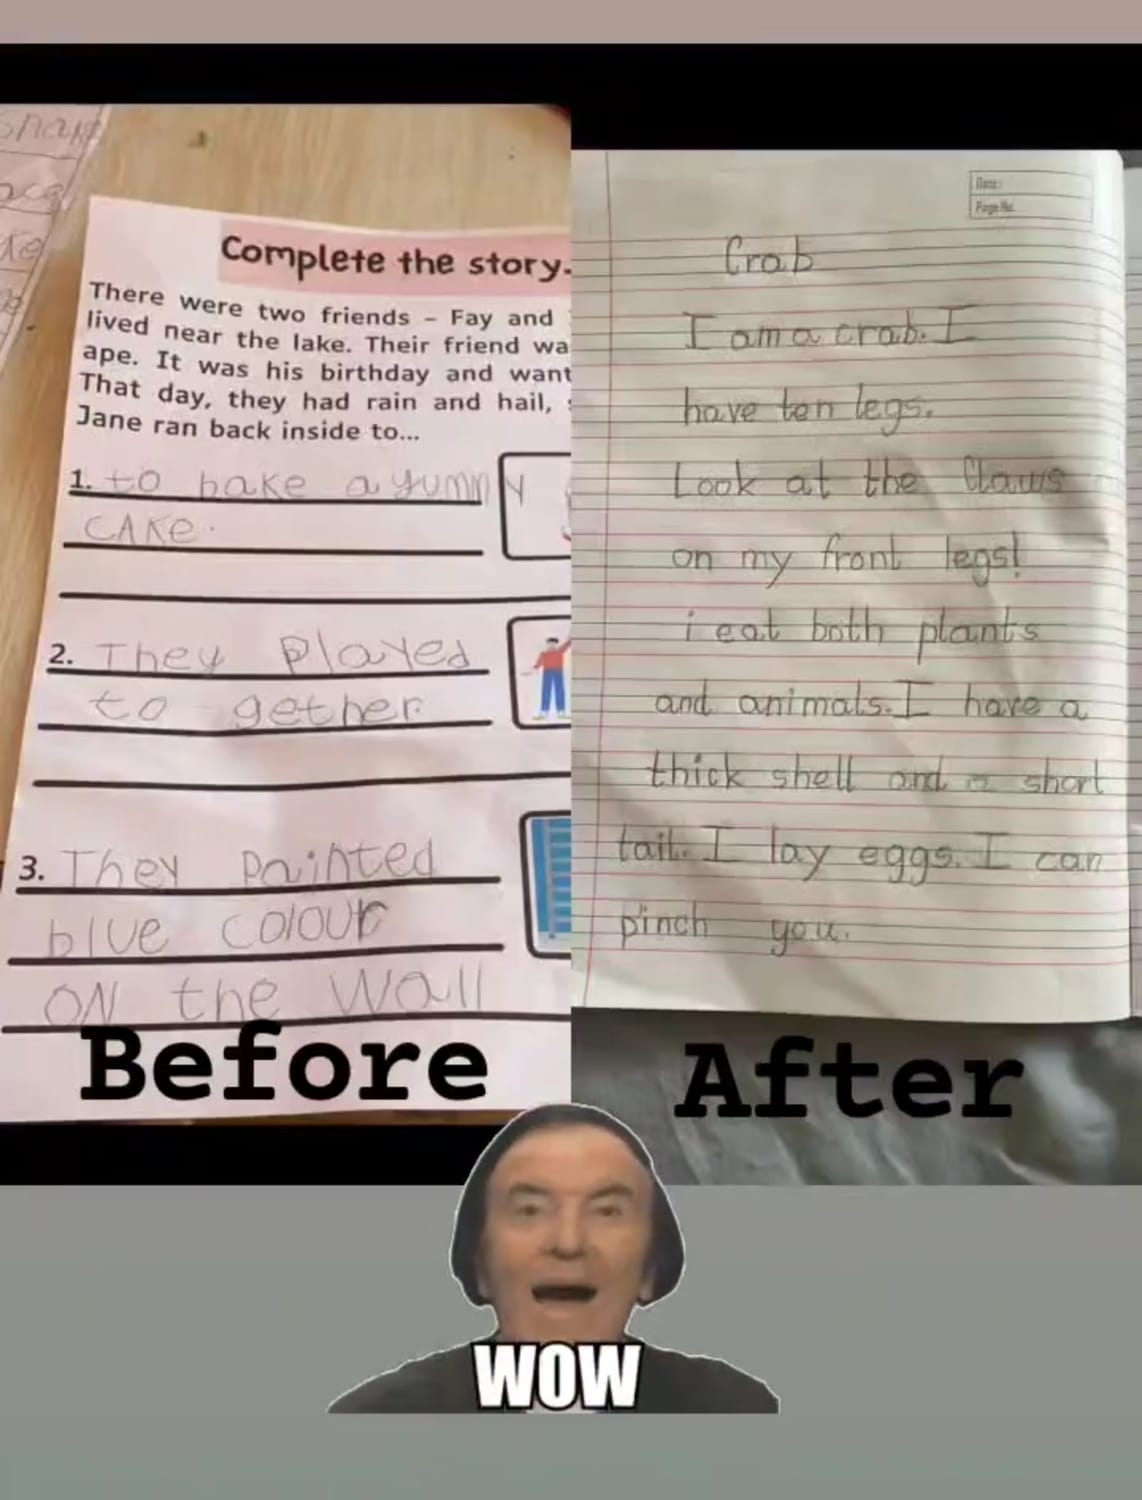 snake
Complete the story.
There were two friends – Fay and
lived near the lake. Their friend wa
ape. It was his birthday and want
That day, they had rain and hail,
Jane ran back inside to...
1. to bake a yummy
CAKe.
2. They Played
to gether
3. They Painted
blue colour
ON the Wall
Before
Date:
Page No.
Crab
I am a crab. I
have ten legs.
Look at the Claws
on my front legs!
i eat both plants
and animals. I have a
thick shell and a short
tail. I lay eggs. I can
pinch you.
After
WOW